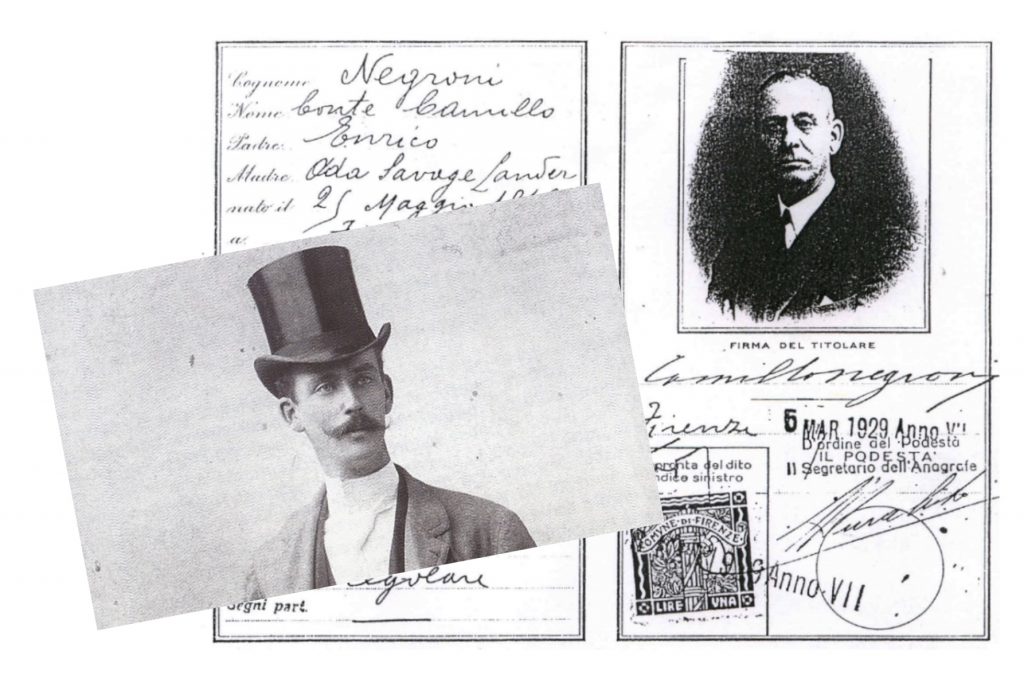 Cognome Negroni
Nome Conte Camillo
Padre Enrico
Madre Ada Savage Landor
nato il 25 Maggio
a
Segni part.
FIRMA DEL TITOLARE
Camillo Negroni
Firenze 6 MAR 1929 Anno VII
D'ordine del Podestà
IL PODESTA'
Il Segretario dell'Anagrafe
pronta del dito
ndice sinistro
COMVNE·DI·FIRENZE
LIRE VNA
Anno VII